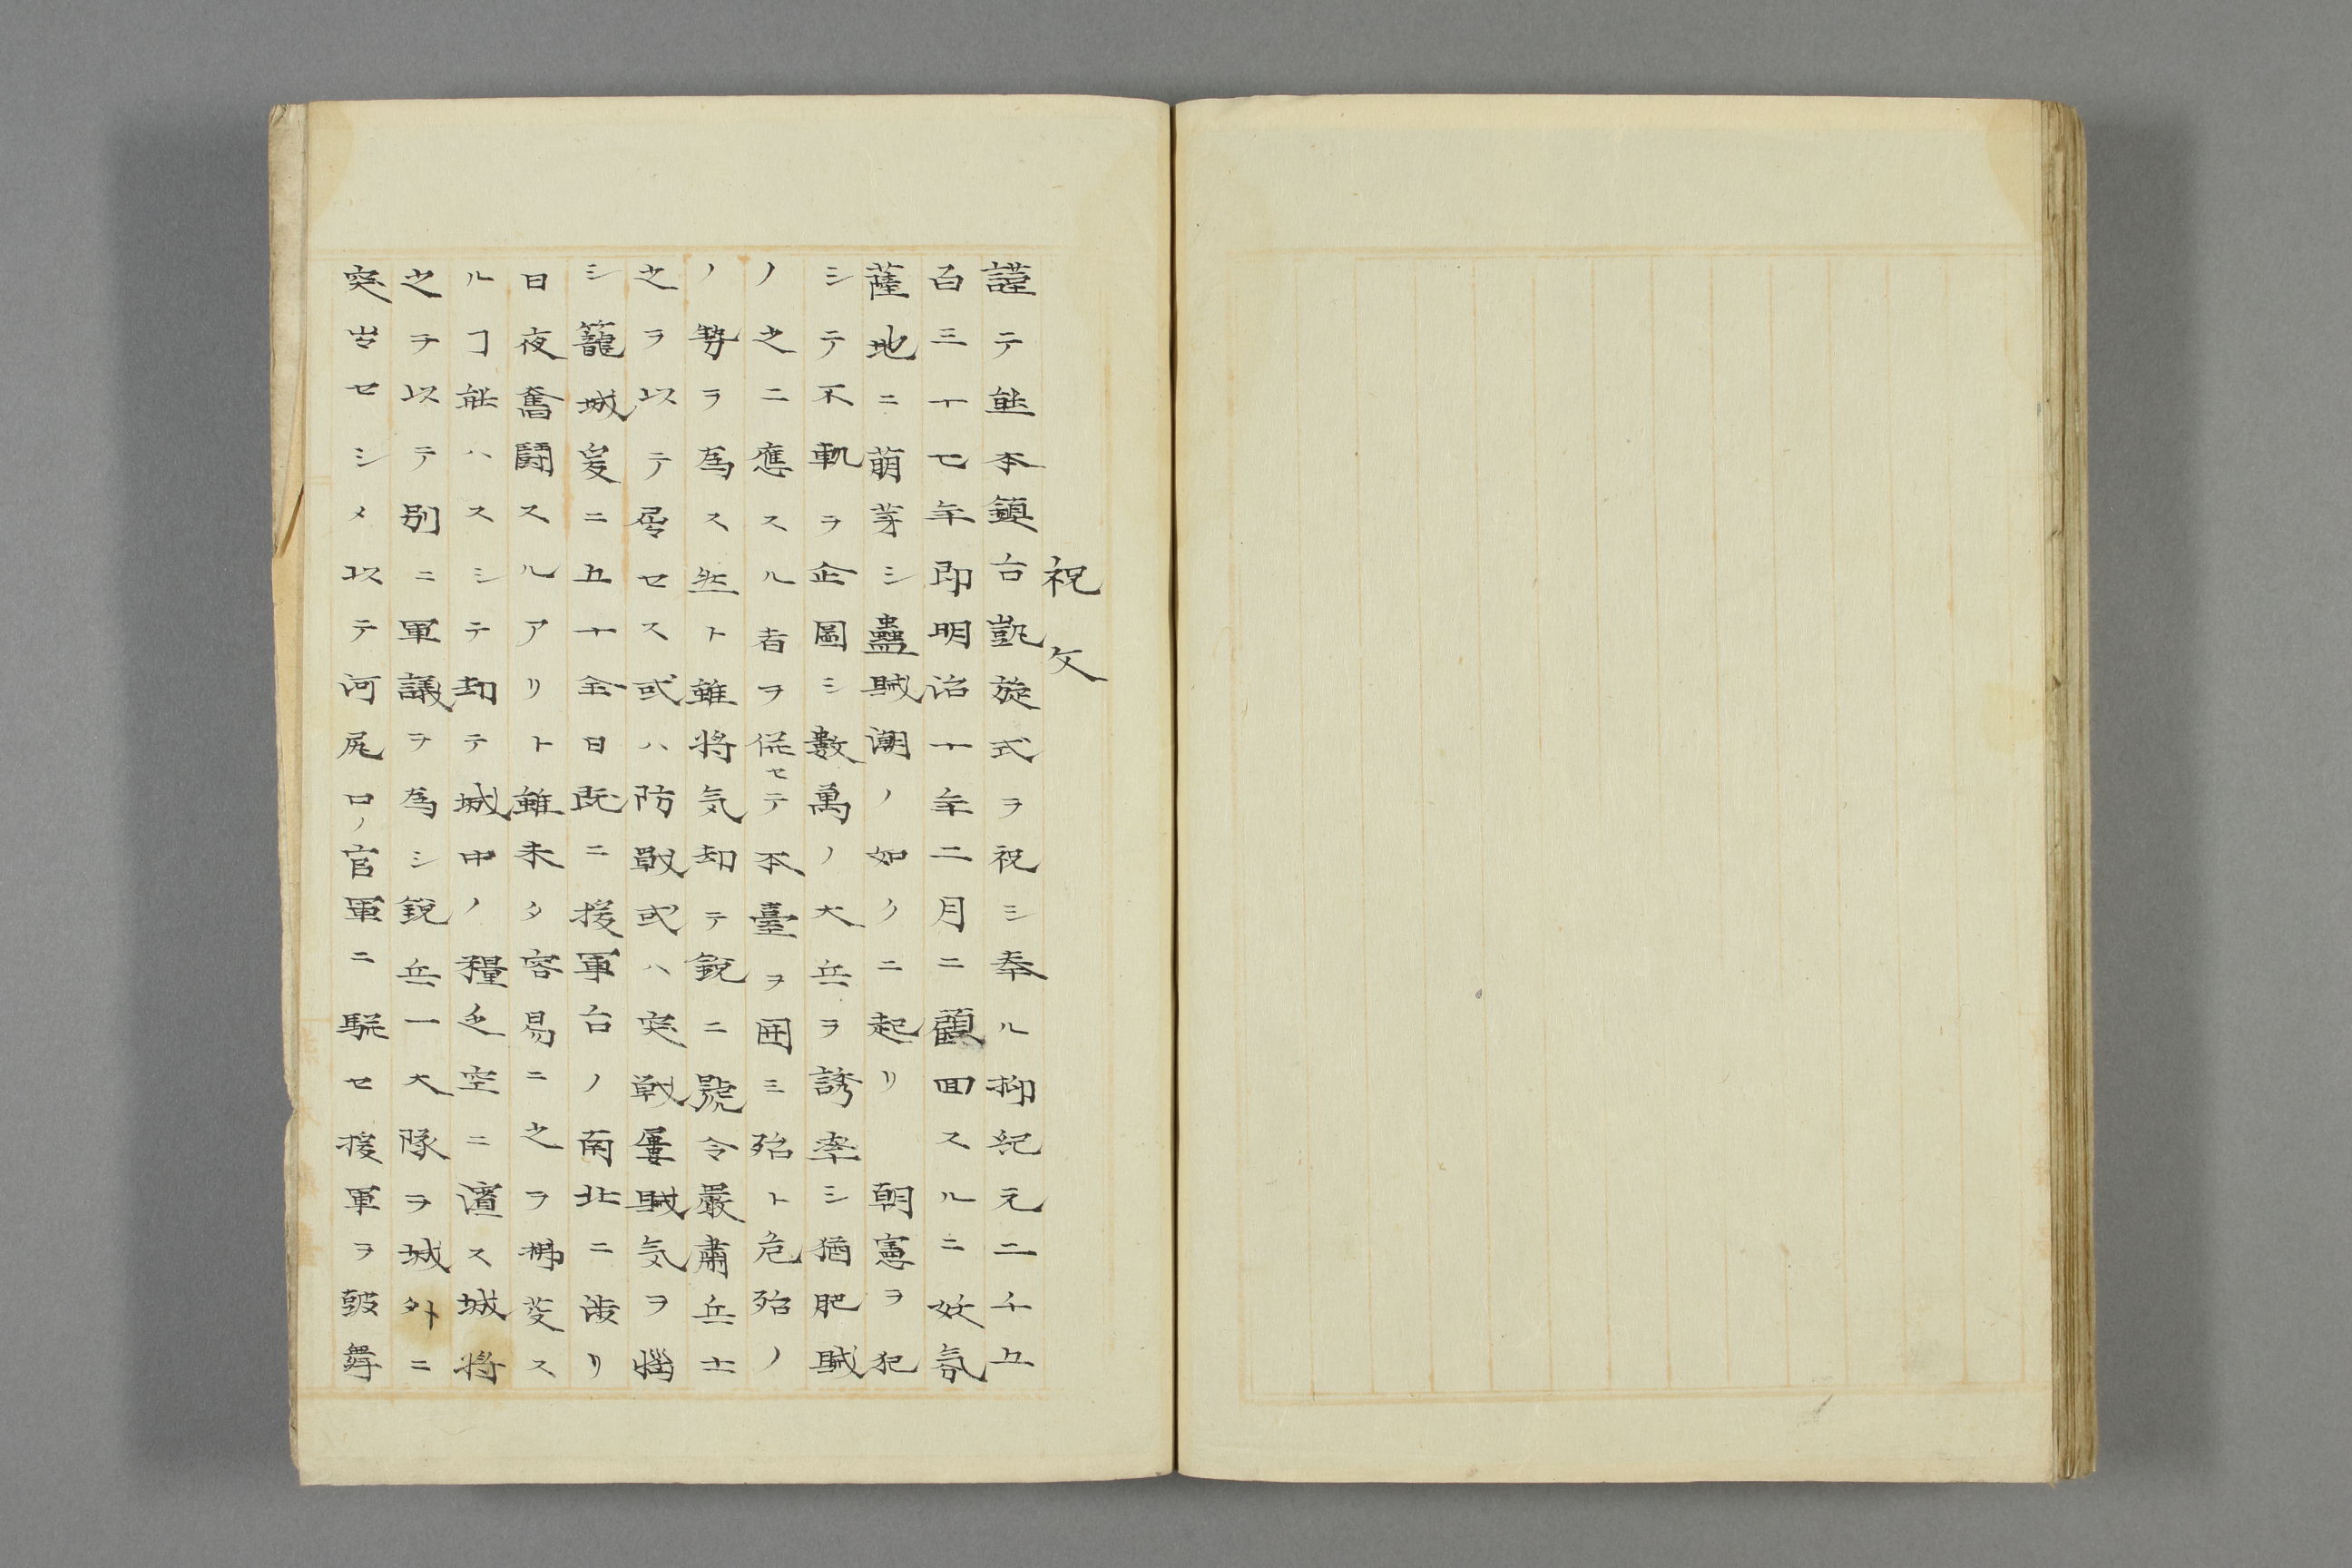 祝文
謹テ熊本鎮台凱旋式ヲ祝シ奉ル抑紀元二千五
百三十七年即明治十年二月ニ顧回スルニ妖氛
薩地ニ萌芽シ蠱賊潮ノ如クニ起リ　朝憲ヲ犯
シテ不軌ヲ企圖シ數萬ノ大兵ヲ誘率シ猶肥賊
ノ之ニ應スル者ヲ併セテ本臺ヲ囲ミ殆ト危殆ノ
ノ勢ヲ為ス然ト雖将気却テ鋭ニ號令嚴肅兵士
之ヲ以テ屈セス或ハ防戰或ハ突戰屢賊気ヲ惱
シ籠城爰ニ五十余日既ニ援軍台ノ南北ニ渉リ
日夜奮闘スルアリト雖未タ容易ニ之ヲ拂ス
ルヿ能ハスシテ却テ城中ノ糧乏空ニ濱ス城将
之ヲ以テ別ニ軍議ヲ為シ鋭兵一大隊ヲ城外ニ
突出セシメ以テ河尻口ノ官軍ニ駆セ援軍ヲ鼓舞